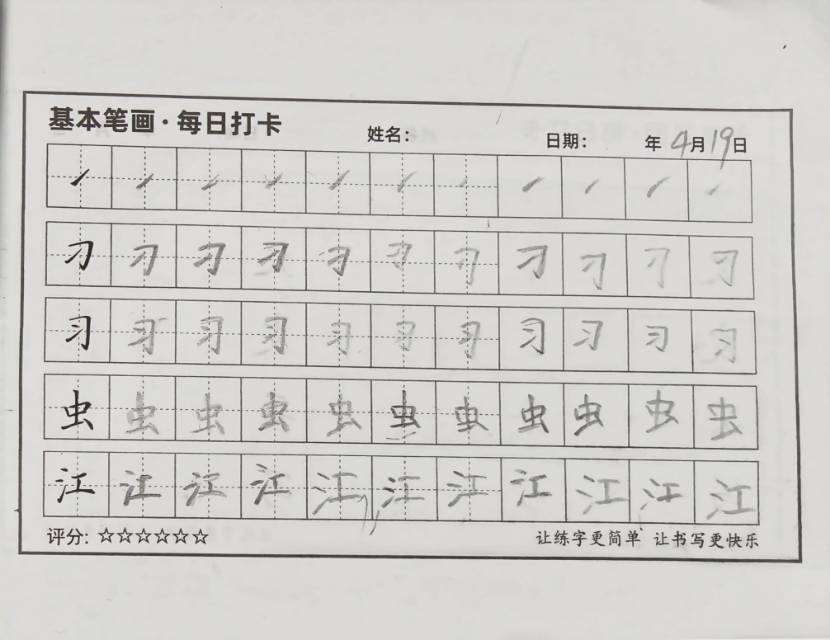 基本笔画·每日打卡
姓名： 日期： 年 4月19日
㇀ ㇀ ㇀ ㇀ ㇀ ㇀ ㇀ ㇀ ㇀ ㇀ ㇀
刁 刁 刁 刁 刁 刁 刁 刁 刁 刁 刁
习 习 习 习 习 习 习 习 习 习 习
虫 虫 虫 虫 虫 虫 虫 虫 虫 虫 虫
江 江 江 江 江 江 江 江 江 江 江
评分：☆☆☆☆☆☆ 让练字更简单 让书写更快乐